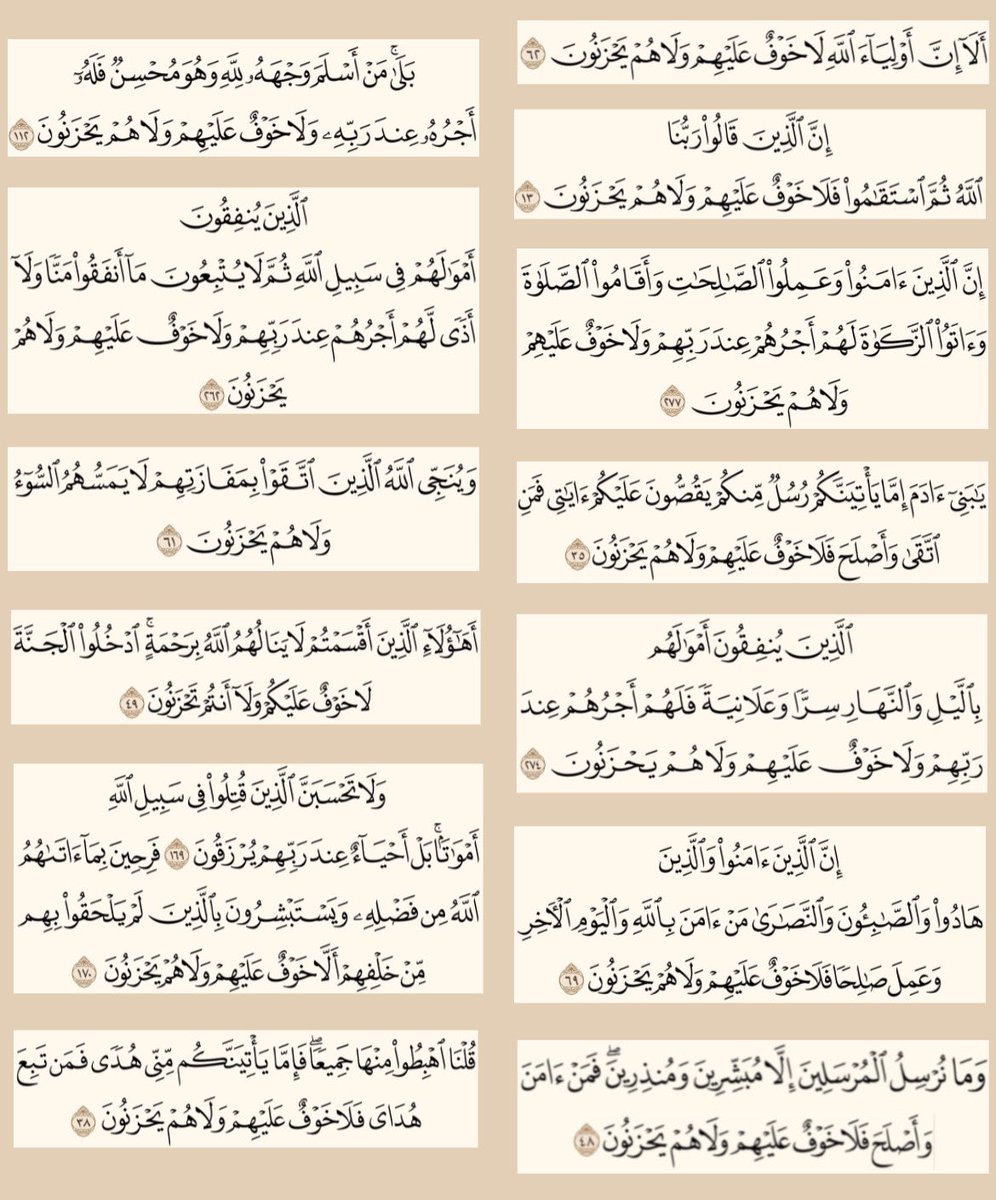 أَلَآ إِنَّ أَوۡلِيَآءَ ٱللَّهِ لَا خَوۡفٌ عَلَيۡهِمۡ وَلَا هُمۡ يَحۡزَنُونَ ٦٢
إِنَّ ٱلَّذِينَ قَالُواْ رَبُّنَا
ٱللَّهُ ثُمَّ ٱسۡتَقَٰمُواْ فَلَا خَوۡفٌ عَلَيۡهِمۡ وَلَا هُمۡ يَحۡزَنُونَ ١٣
إِنَّ ٱلَّذِينَ ءَامَنُواْ وَعَمِلُواْ ٱلصَّٰلِحَٰتِ وَأَقَامُواْ ٱلصَّلَوٰةَ
وَءَاتَوُاْ ٱلزَّكَوٰةَ لَهُمۡ أَجۡرُهُمۡ عِندَ رَبِّهِمۡ وَلَا خَوۡفٌ عَلَيۡهِمۡ
وَلَا هُمۡ يَحۡزَنُونَ ٢٧٧
يَٰبَنِيٓ ءَادَمَ إِمَّا يَأۡتِيَنَّكُمۡ رُسُلٞ مِّنكُمۡ يَقُصُّونَ عَلَيۡكُمۡ ءَايَٰتِي فَمَنِ
ٱتَّقَىٰ وَأَصۡلَحَ فَلَا خَوۡفٌ عَلَيۡهِمۡ وَلَا هُمۡ يَحۡزَنُونَ ٣٥
ٱلَّذِينَ يُنفِقُونَ أَمۡوَٰلَهُم
بِٱلَّيۡلِ وَٱلنَّهَارِ سِرّٗا وَعَلَانِيَةٗ فَلَهُمۡ أَجۡرُهُمۡ عِندَ
رَبِّهِمۡ وَلَا خَوۡفٌ عَلَيۡهِمۡ وَلَا هُمۡ يَحۡزَنُونَ ٢٧٤
إِنَّ ٱلَّذِينَ ءَامَنُواْ وَٱلَّذِينَ
هَادُواْ وَٱلصَّٰبِـُٔونَ وَٱلنَّصَٰرَىٰ مَنۡ ءَامَنَ بِٱللَّهِ وَٱلۡيَوۡمِ ٱلۡأٓخِرِ
وَعَمِلَ صَٰلِحٗا فَلَا خَوۡفٌ عَلَيۡهِمۡ وَلَا هُمۡ يَحۡزَنُونَ ٦٩
وَمَا نُرۡسِلُ ٱلۡمُرۡسَلِينَ إِلَّا مُبَشِّرِينَ وَمُنذِرِينَۖ فَمَنۡ ءَامَنَ
وَأَصۡلَحَ فَلَا خَوۡفٌ عَلَيۡهِمۡ وَلَا هُمۡ يَحۡزَنُونَ ٤٨
بَلَىٰۚ مَنۡ أَسۡلَمَ وَجۡهَهُۥ لِلَّهِ وَهُوَ مُحۡسِنٞ فَلَهُۥٓ
أَجۡرُهُۥ عِندَ رَبِّهِۦ وَلَا خَوۡفٌ عَلَيۡهِمۡ وَلَا هُمۡ يَحۡزَنُونَ ١١٢
ٱلَّذِينَ يُنفِقُونَ
أَمۡوَٰلَهُمۡ فِي سَبِيلِ ٱللَّهِ ثُمَّ لَا يُتۡبِعُونَ مَآ أَنفَقُواْ مَنّٗا وَلَآ
أَذٗى لَّهُمۡ أَجۡرُهُمۡ عِندَ رَبِّهِمۡ وَلَا خَوۡفٌ عَلَيۡهِمۡ وَلَا هُمۡ
يَحۡزَنُونَ ٢٦٢
وَيُنَجِّي ٱللَّهُ ٱلَّذِينَ ٱتَّقَوۡاْ بِمَفَازَتِهِمۡ لَا يَمَسُّهُمُ ٱلسُّوٓءُ
وَلَا هُمۡ يَحۡزَنُونَ ٦١
أَهَٰٓؤُلَآءِ ٱلَّذِينَ أَقۡسَمۡتُمۡ لَا يَنَالُهُمُ ٱللَّهُ بِرَحۡمَةٍۚ ٱدۡخُلُواْ ٱلۡجَنَّةَ
لَا خَوۡفٌ عَلَيۡكُمۡ وَلَآ أَنتُمۡ تَحۡزَنُونَ ٤٩
وَلَا تَحۡسَبَنَّ ٱلَّذِينَ قُتِلُواْ فِي سَبِيلِ ٱللَّهِ
أَمۡوَٰتَۢاۚ بَلۡ أَحۡيَآءٌ عِندَ رَبِّهِمۡ يُرۡزَقُونَ ١٦٩ فَرِحِينَ بِمَآ ءَاتَىٰهُمُ
ٱللَّهُ مِن فَضۡلِهِۦ وَيَسۡتَبۡشِرُونَ بِٱلَّذِينَ لَمۡ يَلۡحَقُواْ بِهِم
مِّنۡ خَلۡفِهِمۡ أَلَّا خَوۡفٌ عَلَيۡهِمۡ وَلَا هُمۡ يَحۡزَنُونَ ١٧٠
قُلۡنَا ٱهۡبِطُواْ مِنۡهَا جَمِيعٗاۖ فَإِمَّا يَأۡتِيَنَّكُم مِّنِّي هُدٗى فَمَن تَبِعَ
هُدَايَ فَلَا خَوۡفٌ عَلَيۡهِمۡ وَلَا هُمۡ يَحۡزَنُونَ ٣٨